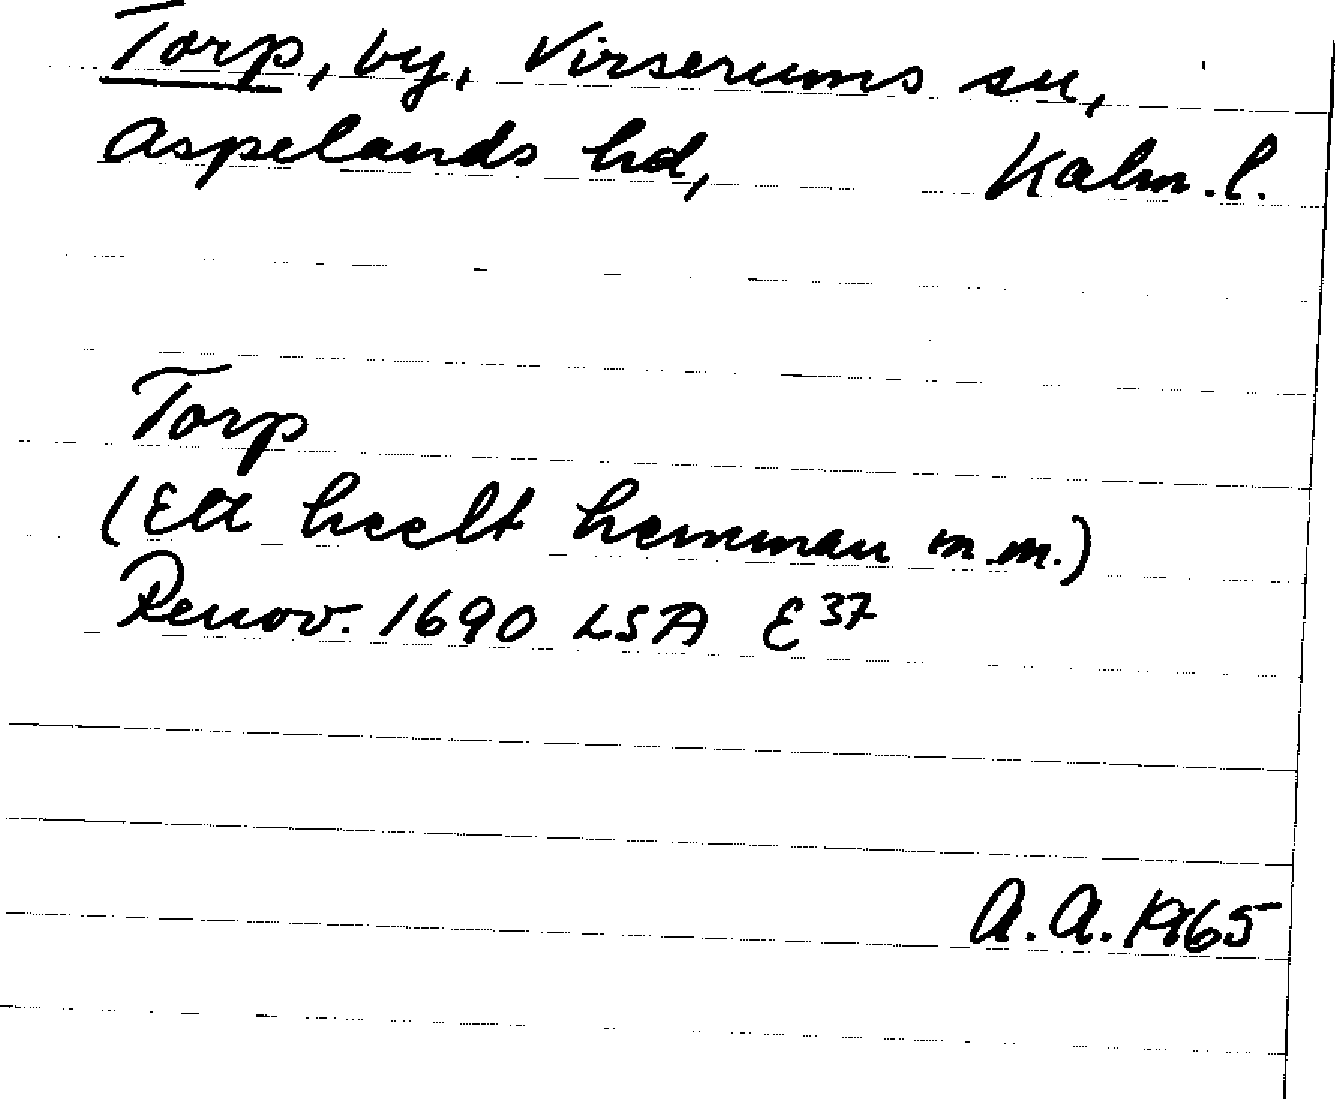 Torp, by, Virserums sn,
Aspelands hd, Kalm. l.
Torp
(Ett heelt hemman m.m.)
Renov. 1690 LSA E 37
A. A. 1965